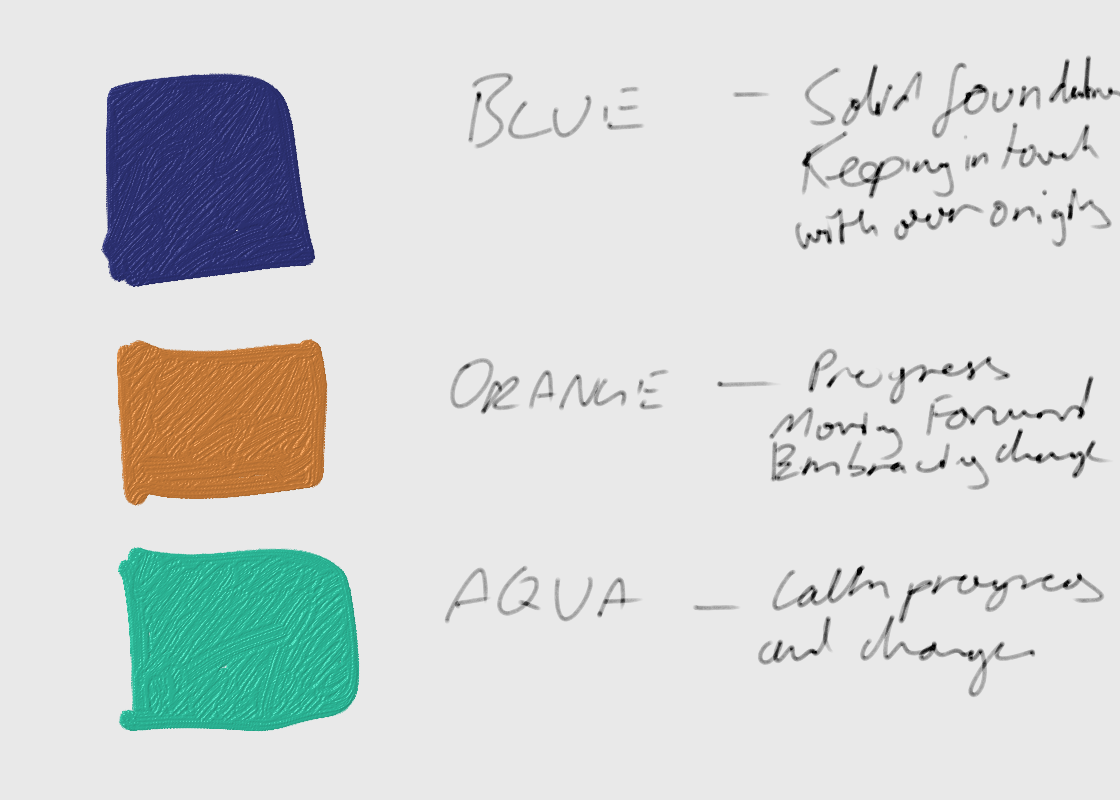 BLUE — Solid foundation
Keeping in touch
with our origins
ORANGE — Progress
Moving Forward
Embracing change
AQUA — Calm progress
and change.